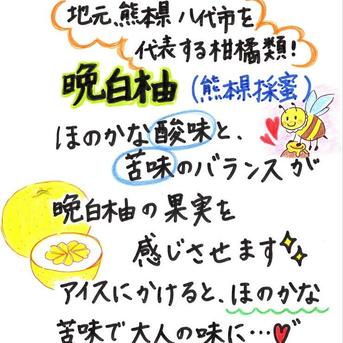 地元、熊本県 八代市を
代表する柑橘類!
晩白柚(熊本県採蜜)
ほのかな酸味と、
苦味のバランスが
晩白柚の果実を
感じさせます✨
アイスにかけると、ほのかな
苦味で大人の味に…♥